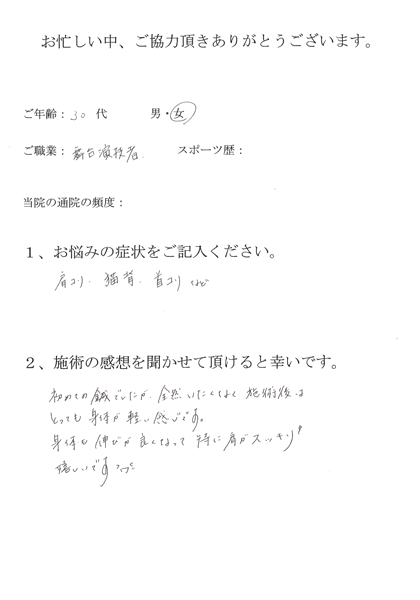 お忙しい中、ご協力頂きありがとうございます。
ご年齢：30 代　男・女
ご職業：舞台演技者.　スポーツ歴：
当院の通院の頻度：
1、お悩みの症状をご記入ください。
肩コリ、猫背、首コリ など
2、施術の感想を聞かせて頂けると幸いです。
初めての鍼でしたが、全然いたくなく 施術後は
とっても身体が軽い感じです。
身体も伸びが良くなって 特に肩がスッキリ
嬉しいです